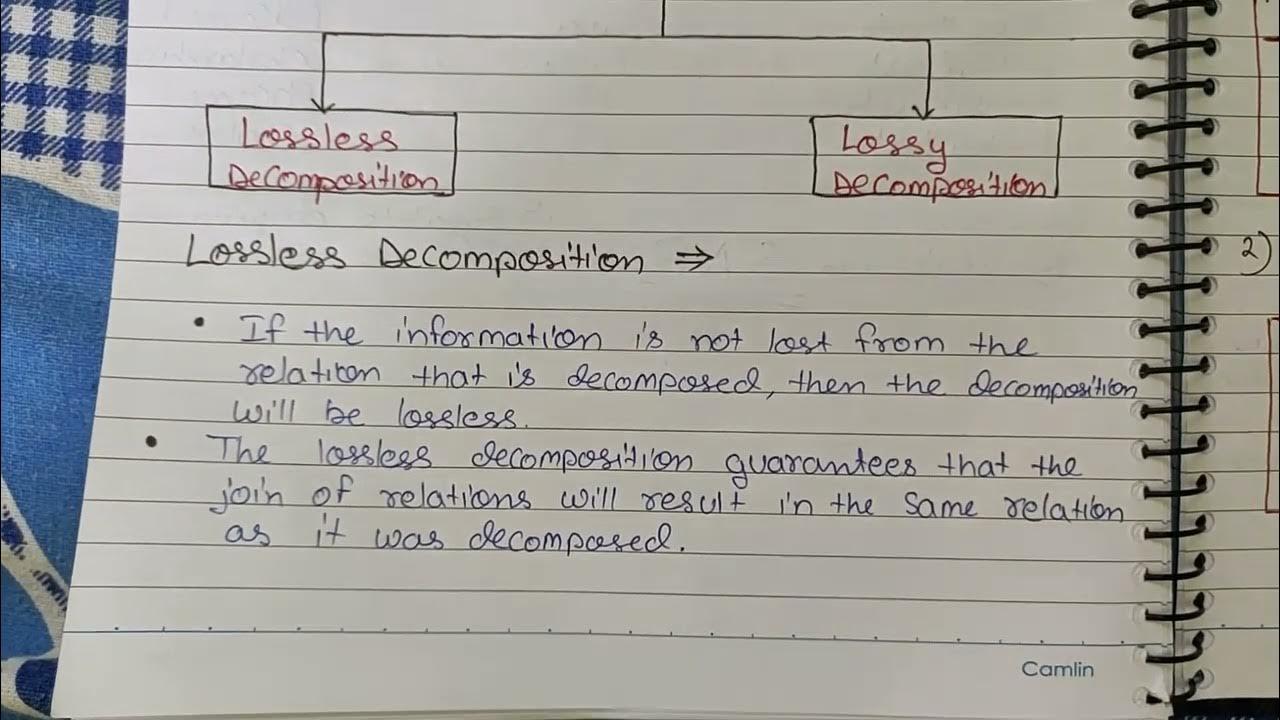 Lossless
Decomposition
Lossy
Decomposition
Lossless Decomposition ⇒
2)
• If the information is not lost from the
relation that is decomposed, then the decomposition
will be lossless.
• The lossless decomposition guarantees that the
join of relations will result in the same relation
as it was decomposed.
Camlin